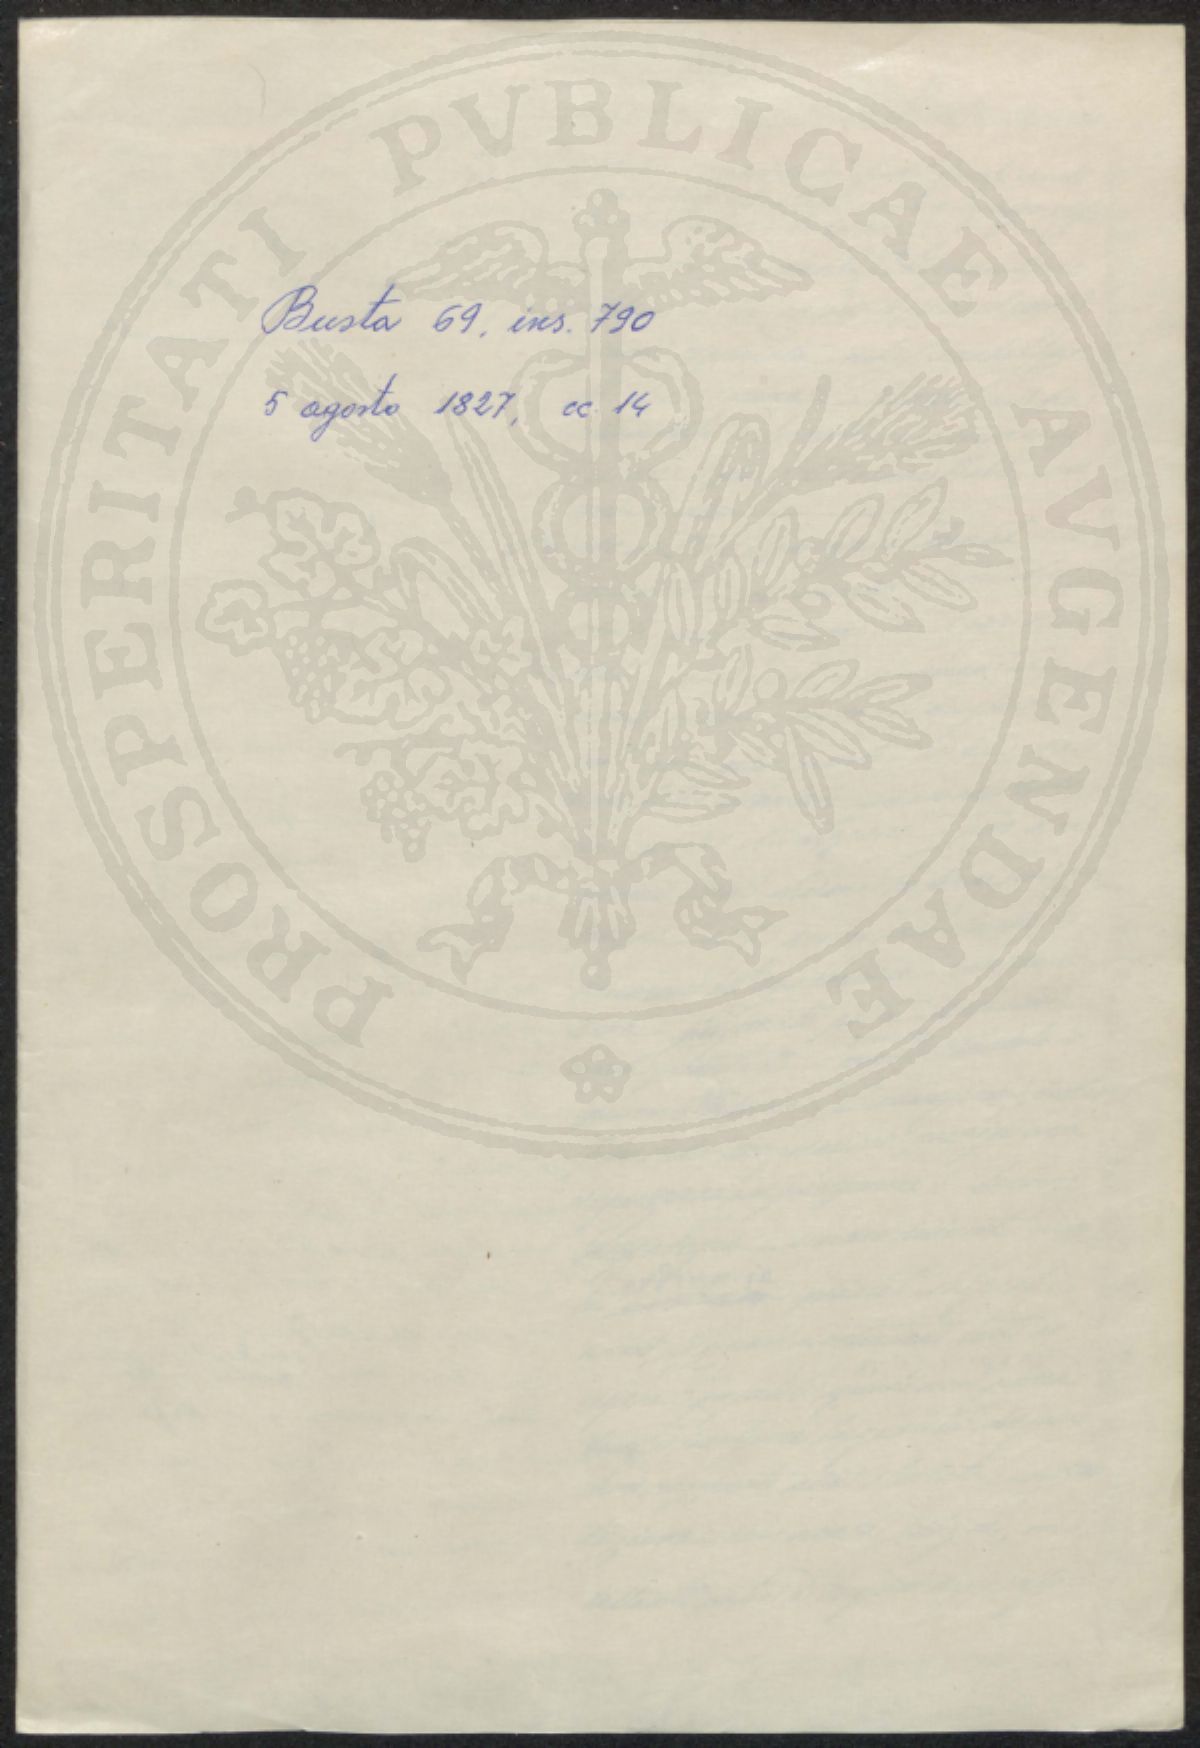 PROSPERITATI PVBLICAE AVGENDAE
Busta 69, ins. 790
5 agosto 1827, cc. 14